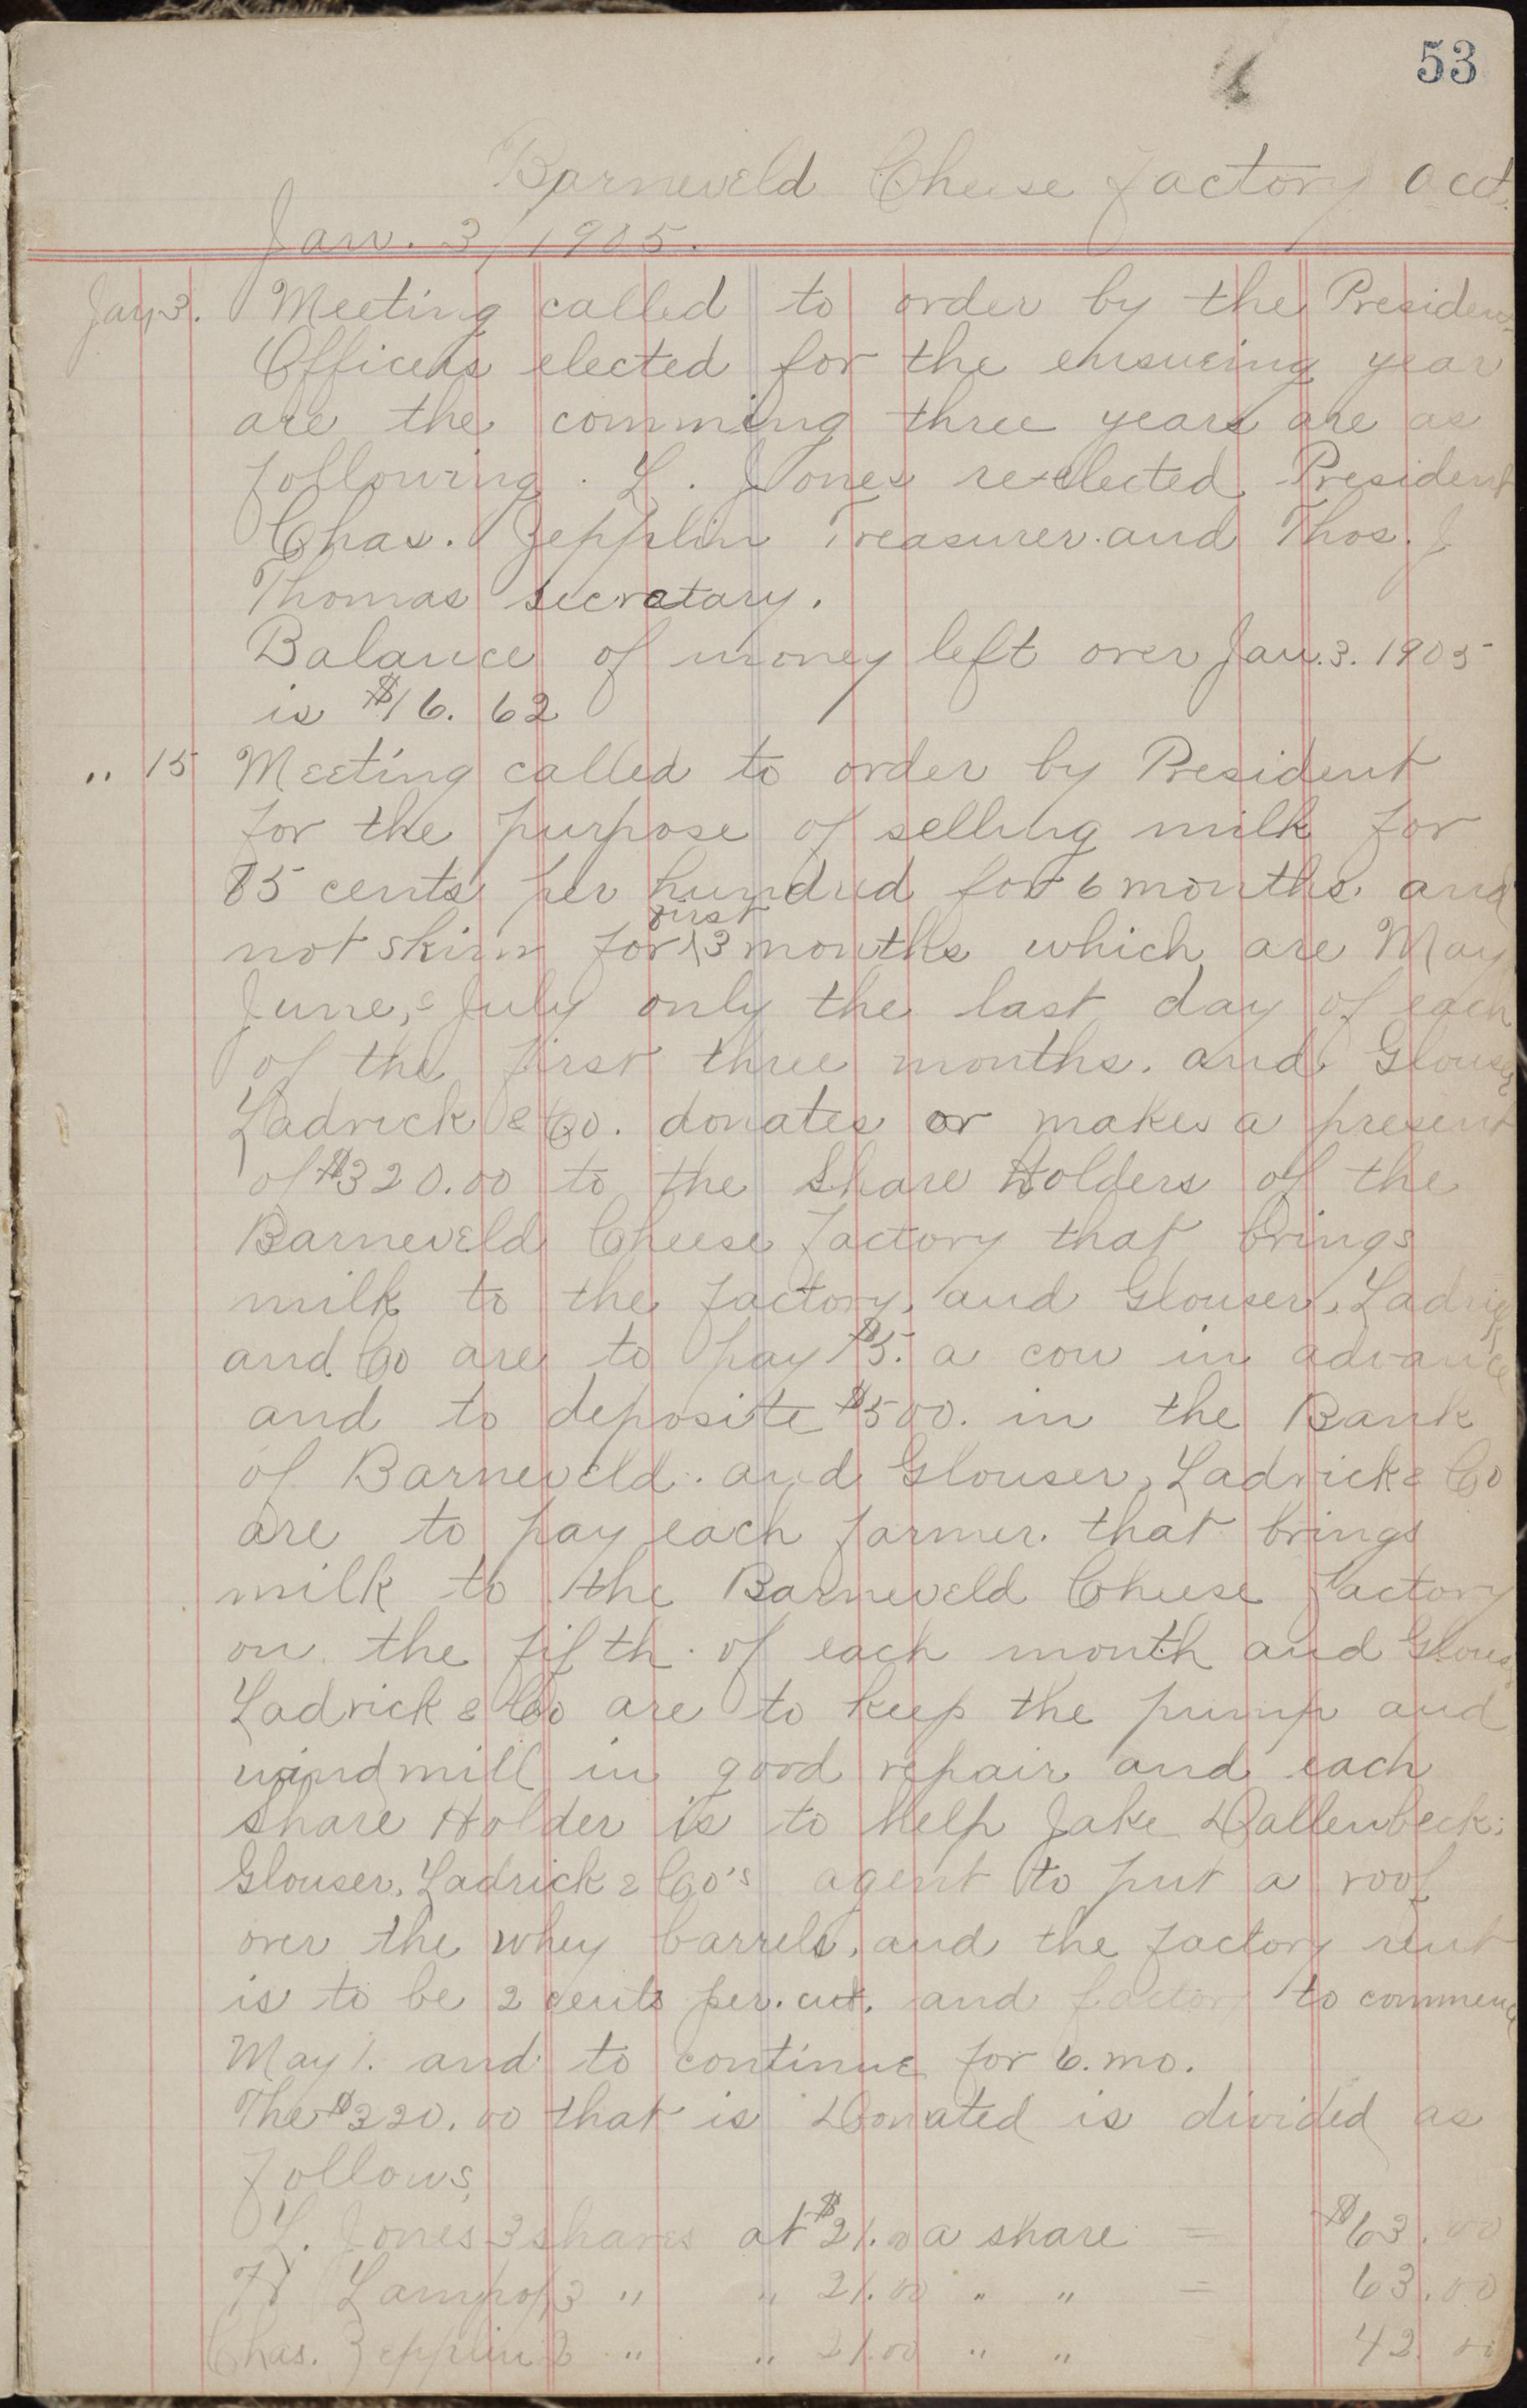 53
Barneveld Cheese factory acct.
Jan. 3, 1905.
Jan 3. Meeting called to order by the President
Officers elected for the ensueing year
are the comming three years are as
following. L. Jones re-elected President
Chas. Zepplin Treasurer. and Thos. J
Thomas secratary.
Balance of money left over Jan. 3. 1905
is $16. 62
" 15 Meeting called to order by President
for the purpose of selling milk for
85 cents per hundred for 6 months. and
not skim for first 3 months which are May
June, & July only the last day of each
of the first three months. and Glouser
Ladrick & Co. donates or makes a present
of $320.00 to the Share Holders of the
Barneveld Cheese factory that brings
milk to the factory, and Glouser, Ladrick
and Co are to pay $5. a cow in advance
and to deposite $500. in the Bank
of Barneveld. and Glouser, Ladrick & Co
are to pay each farmer. that brings
milk to the Barneveld Cheese factory
on the fifth. of each month and Glouser
Ladrick & Co are to keep the pump and
windmill in good repair and each
share Holder is to help Jake Dallenbeck;
Glouser, Ladrick & Co's agent to put a roof
over the whey barrels, and the factory rent
is to be 2 cents per. cwt. and factory to commence
May 1. and to continue for 6. mo.
The $320.00 that is Donated is divided as
follows,
L. Jones 3 shares at $21.00 a share = $63.00
Lampop 3 " " 21.00 " " = 63.00
Chas. Zepplin 2 " " 21.00 " " 42.00